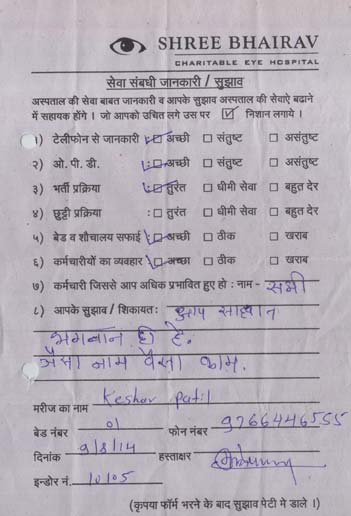 SHREE BHAIRAV
CHARITABLE EYE HOSPITAL
सेवा संबधी जानकारी / सुझाव
अस्पताल की सेवा बाबत जानकारी व आपके सुझाव अस्पताल की सेवाऐं बढाने
में सहायक होंगे । जो आपको उचित लगे उस पर ☑ निशान लगाये ।
१) टेलीफोन से जानकारी ☑ अच्छी □ संतुष्ट □ असंतुष्ट
२) ओ. पी. डी. : ☑ अच्छी □ संतुष्ट □ असंतुष्ट
३) भर्ती प्रक्रिया : ☑ तुरंत □ धीमी सेवा □ बहुत देर
४) छुट्टी प्रक्रिया : □ तुरंत □ धीमी सेवा □ बहुत देर
५) बेड व शौचालय सफाई ☑ अच्छी □ ठीक □ खराब
६) कर्मचारीयों का व्यवहार ☑ अच्छा □ ठीक □ खराब
७) कर्मचारी जिससे आप अधिक प्रभावित हुए हो : नाम - सभी
८) आपके सुझाव / शिकायत : आप साक्षात
भगवान ही है.
जैसा नाम वैसा काम.
मरीज का नाम Keshar Patil
बेड नंबर 01 फोन नंबर 9766446555
दिनांक 9/8/14 हस्ताक्षर
इन्डोर नं. 10105
(कृपया फॉर्म भरने के बाद सुझाव पेटी मे डाले ।)